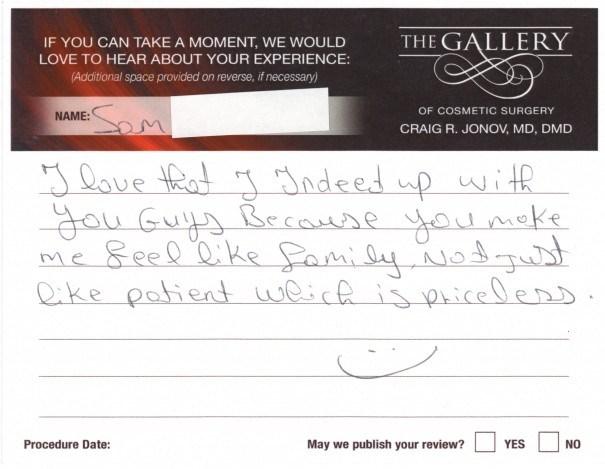 IF YOU CAN TAKE A MOMENT, WE WOULD
LOVE TO HEAR ABOUT YOUR EXPERIENCE:
(Additional space provided on reverse, if necessary)
NAME: Sam
THE GALLERY
OF COSMETIC SURGERY
CRAIG R. JONOV, MD, DMD
I love that I Indeed up with
You Guys Because you make
me feel like family, Not just
like patient which is priceless.
Procedure Date:
May we publish your review? YES NO